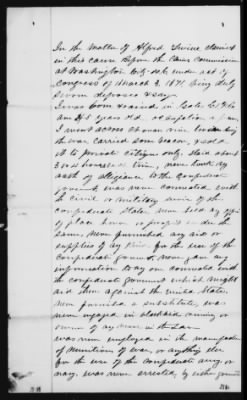 In the Matter of Alfred Irvine claimt
in this cause Before the Claims Commission
at Washington City D.C. under act of
Congress of March 3, 1871 being duly
Sworn deposes & says
I was born & raised in State
am 45 years old, occupation a farmer
I went across
the war carried some bacon, & sold
it to private citizens only staid about
2 or 3 hours each time, never took any
oath of allegiance to the Confederate
government, was never connected with
the civil or military service of the
confederate States, never held any office
of place honor or profit under the
same, Never furnished any aid or
supplies of any kind for the use of the
confederate government, never gave any
information to any one connected with
the confederate government which might
aid them against the united States.
Never furnished a substitute, was
never engaged in blockade running or
owner of any interest in the same
was never employed in the manufacture
of munitions of war, or anything else
for the use of the confederate army or
navy, was never arrested by either government